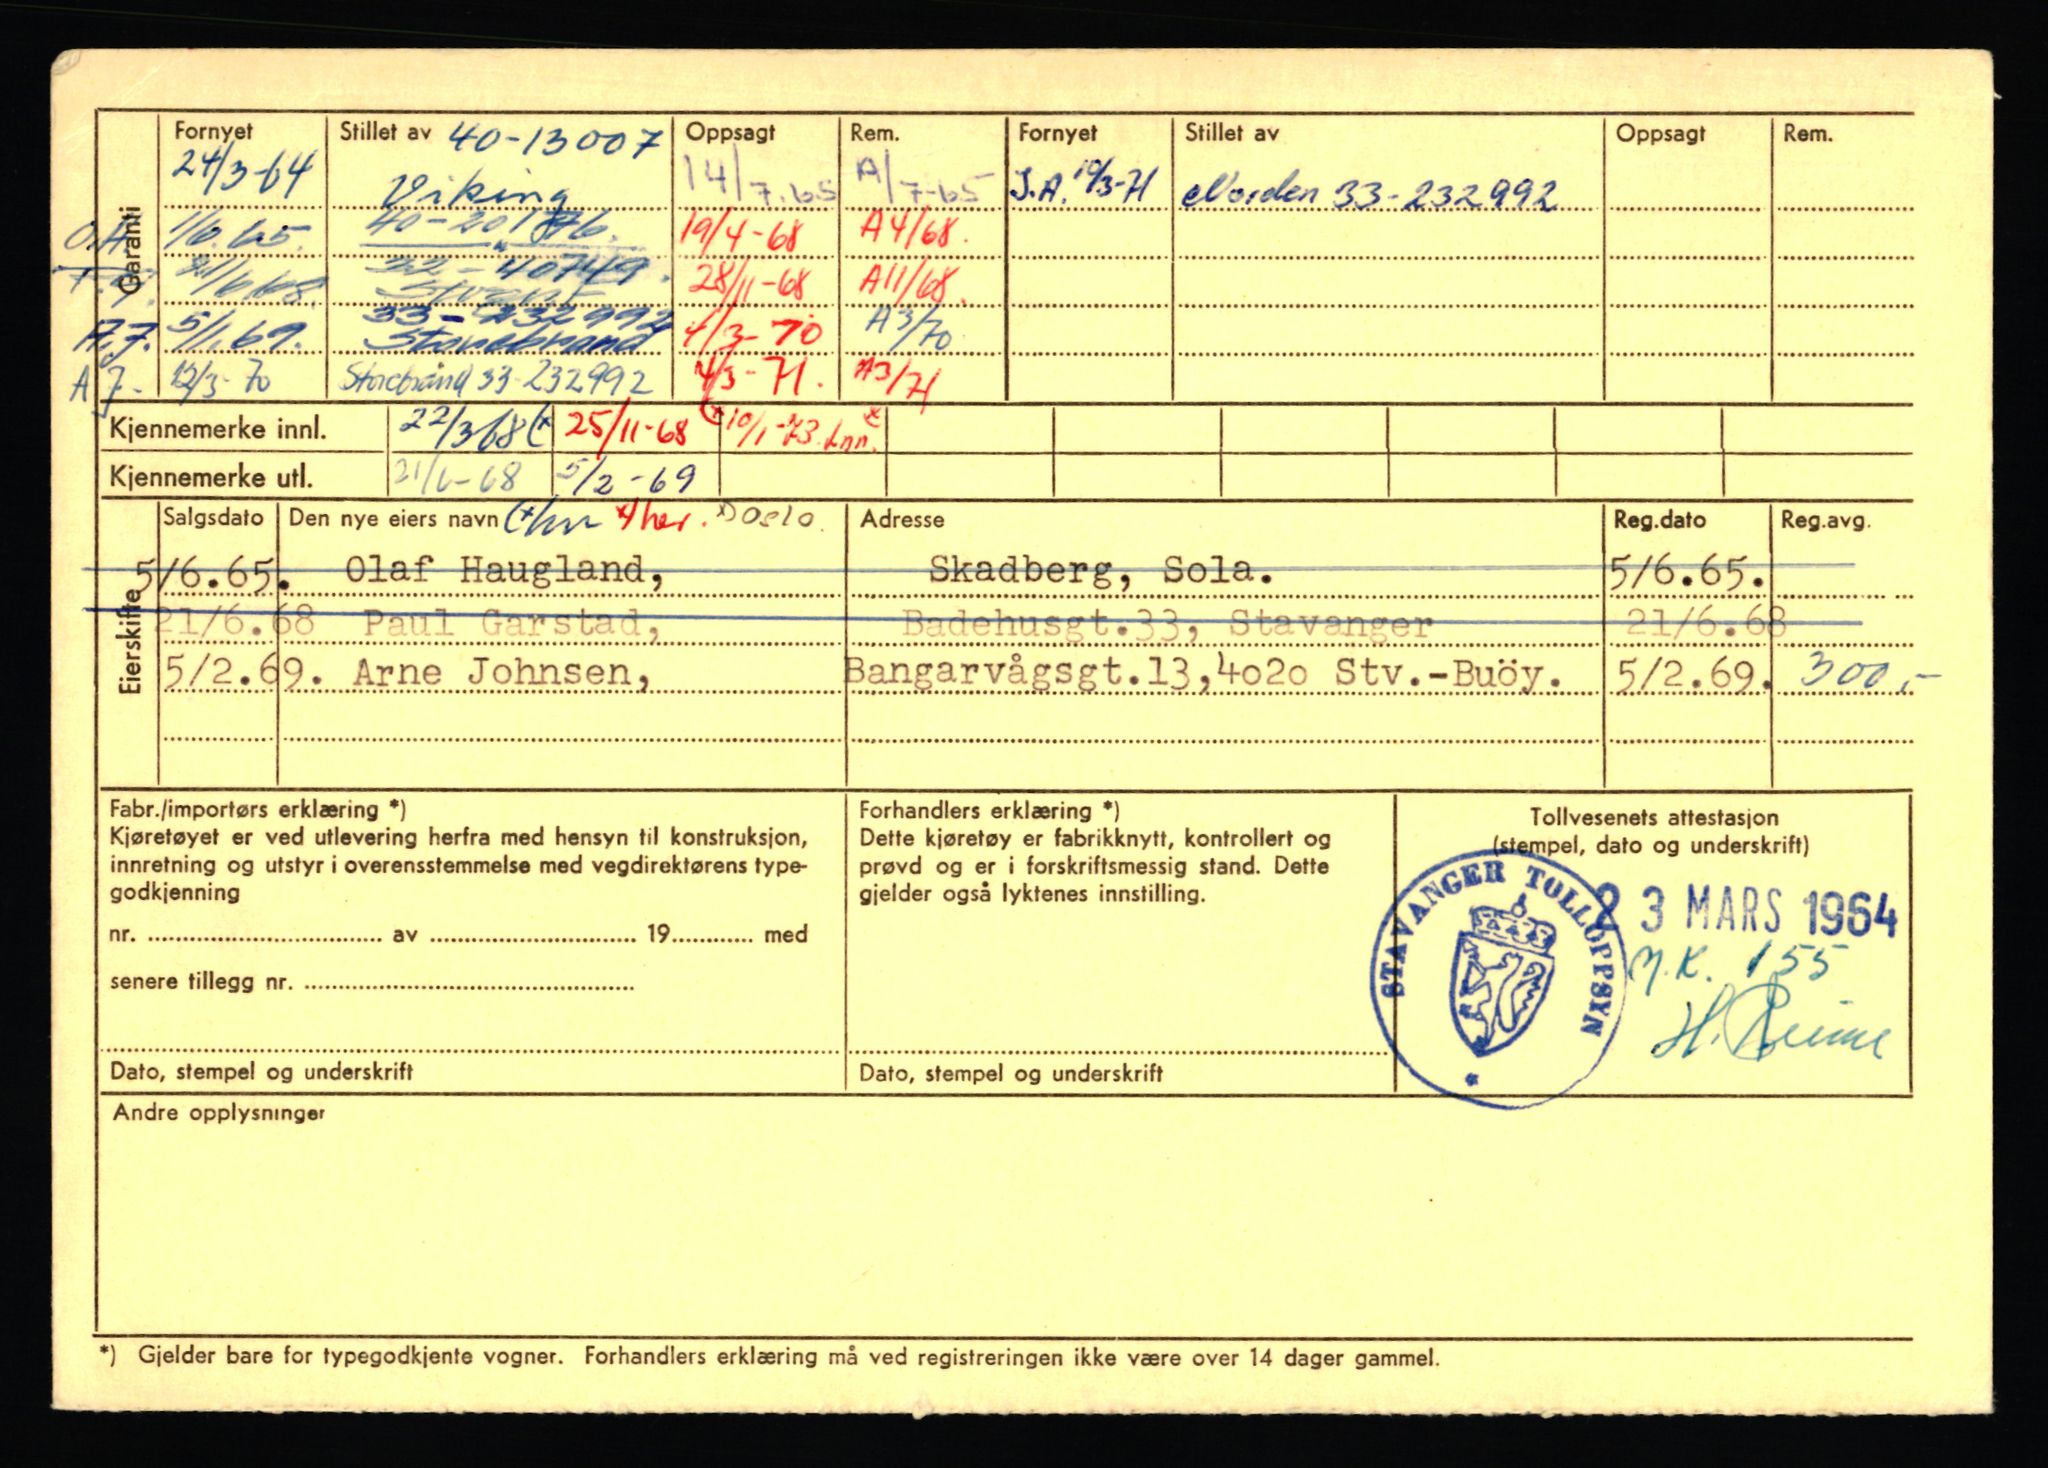 Garanti
Fornyet Stillet av 40-13007 Oppsagt Rem. Fornyet Stillet av Oppsagt Rem.
24/3-64 Viking 14/7.65 A/7-65 J.A. 10/3-71 Norden 33-232992
O.H. 1/6.65. 19/4-68 A4/68.
28/11-68 A11/68.
A.J. 5/1.69. 33-232992 Storebrand 4/3-70 A3/70
A J- 12/3-70 Storebrand 33-232992 4/3-71. A3/71
Kjennemerke innl. 22/3 68 (x 25/11-68 (x 10/1-73. Inn. x
Kjennemerke utl. 21/6-68 5/2-69
Eierskifte
Salgsdato Den nye eiers navn x) Oslo. Adresse Reg.dato Reg.avg.
5/6.65. Olaf Haugland, Skadberg, Sola. 5/6.65.
21/6.68 Paul Garstad, Badehusgt.33, Stavanger 21/6.68
5/2.69. Arne Johnsen, Bangarvågsgt.13,4020 Stv.-Buöy. 5/2.69. 300,-
Fabr./importørs erklæring *)
Kjøretøyet er ved utlevering herfra med hensyn til konstruksjon,
innretning og utstyr i overensstemmelse med vegdirektørens type-
godkjenning
nr. av 19 med
senere tillegg nr.
Dato, stempel og underskrift
Forhandlers erklæring *)
Dette kjøretøy er fabrikknytt, kontrollert og
prøvd og er i forskriftsmessig stand. Dette
gjelder også lyktenes innstilling.
Dato, stempel og underskrift
Tollvesenets attestasjon
(stempel, dato og underskrift)
STAVANGER TOLLOPPSYN
23 MARS 1964
155
H. Reime
Andre opplysninger
*) Gjelder bare for typegodkjente vogner. Forhandlers erklæring må ved registreringen ikke være over 14 dager gammel.